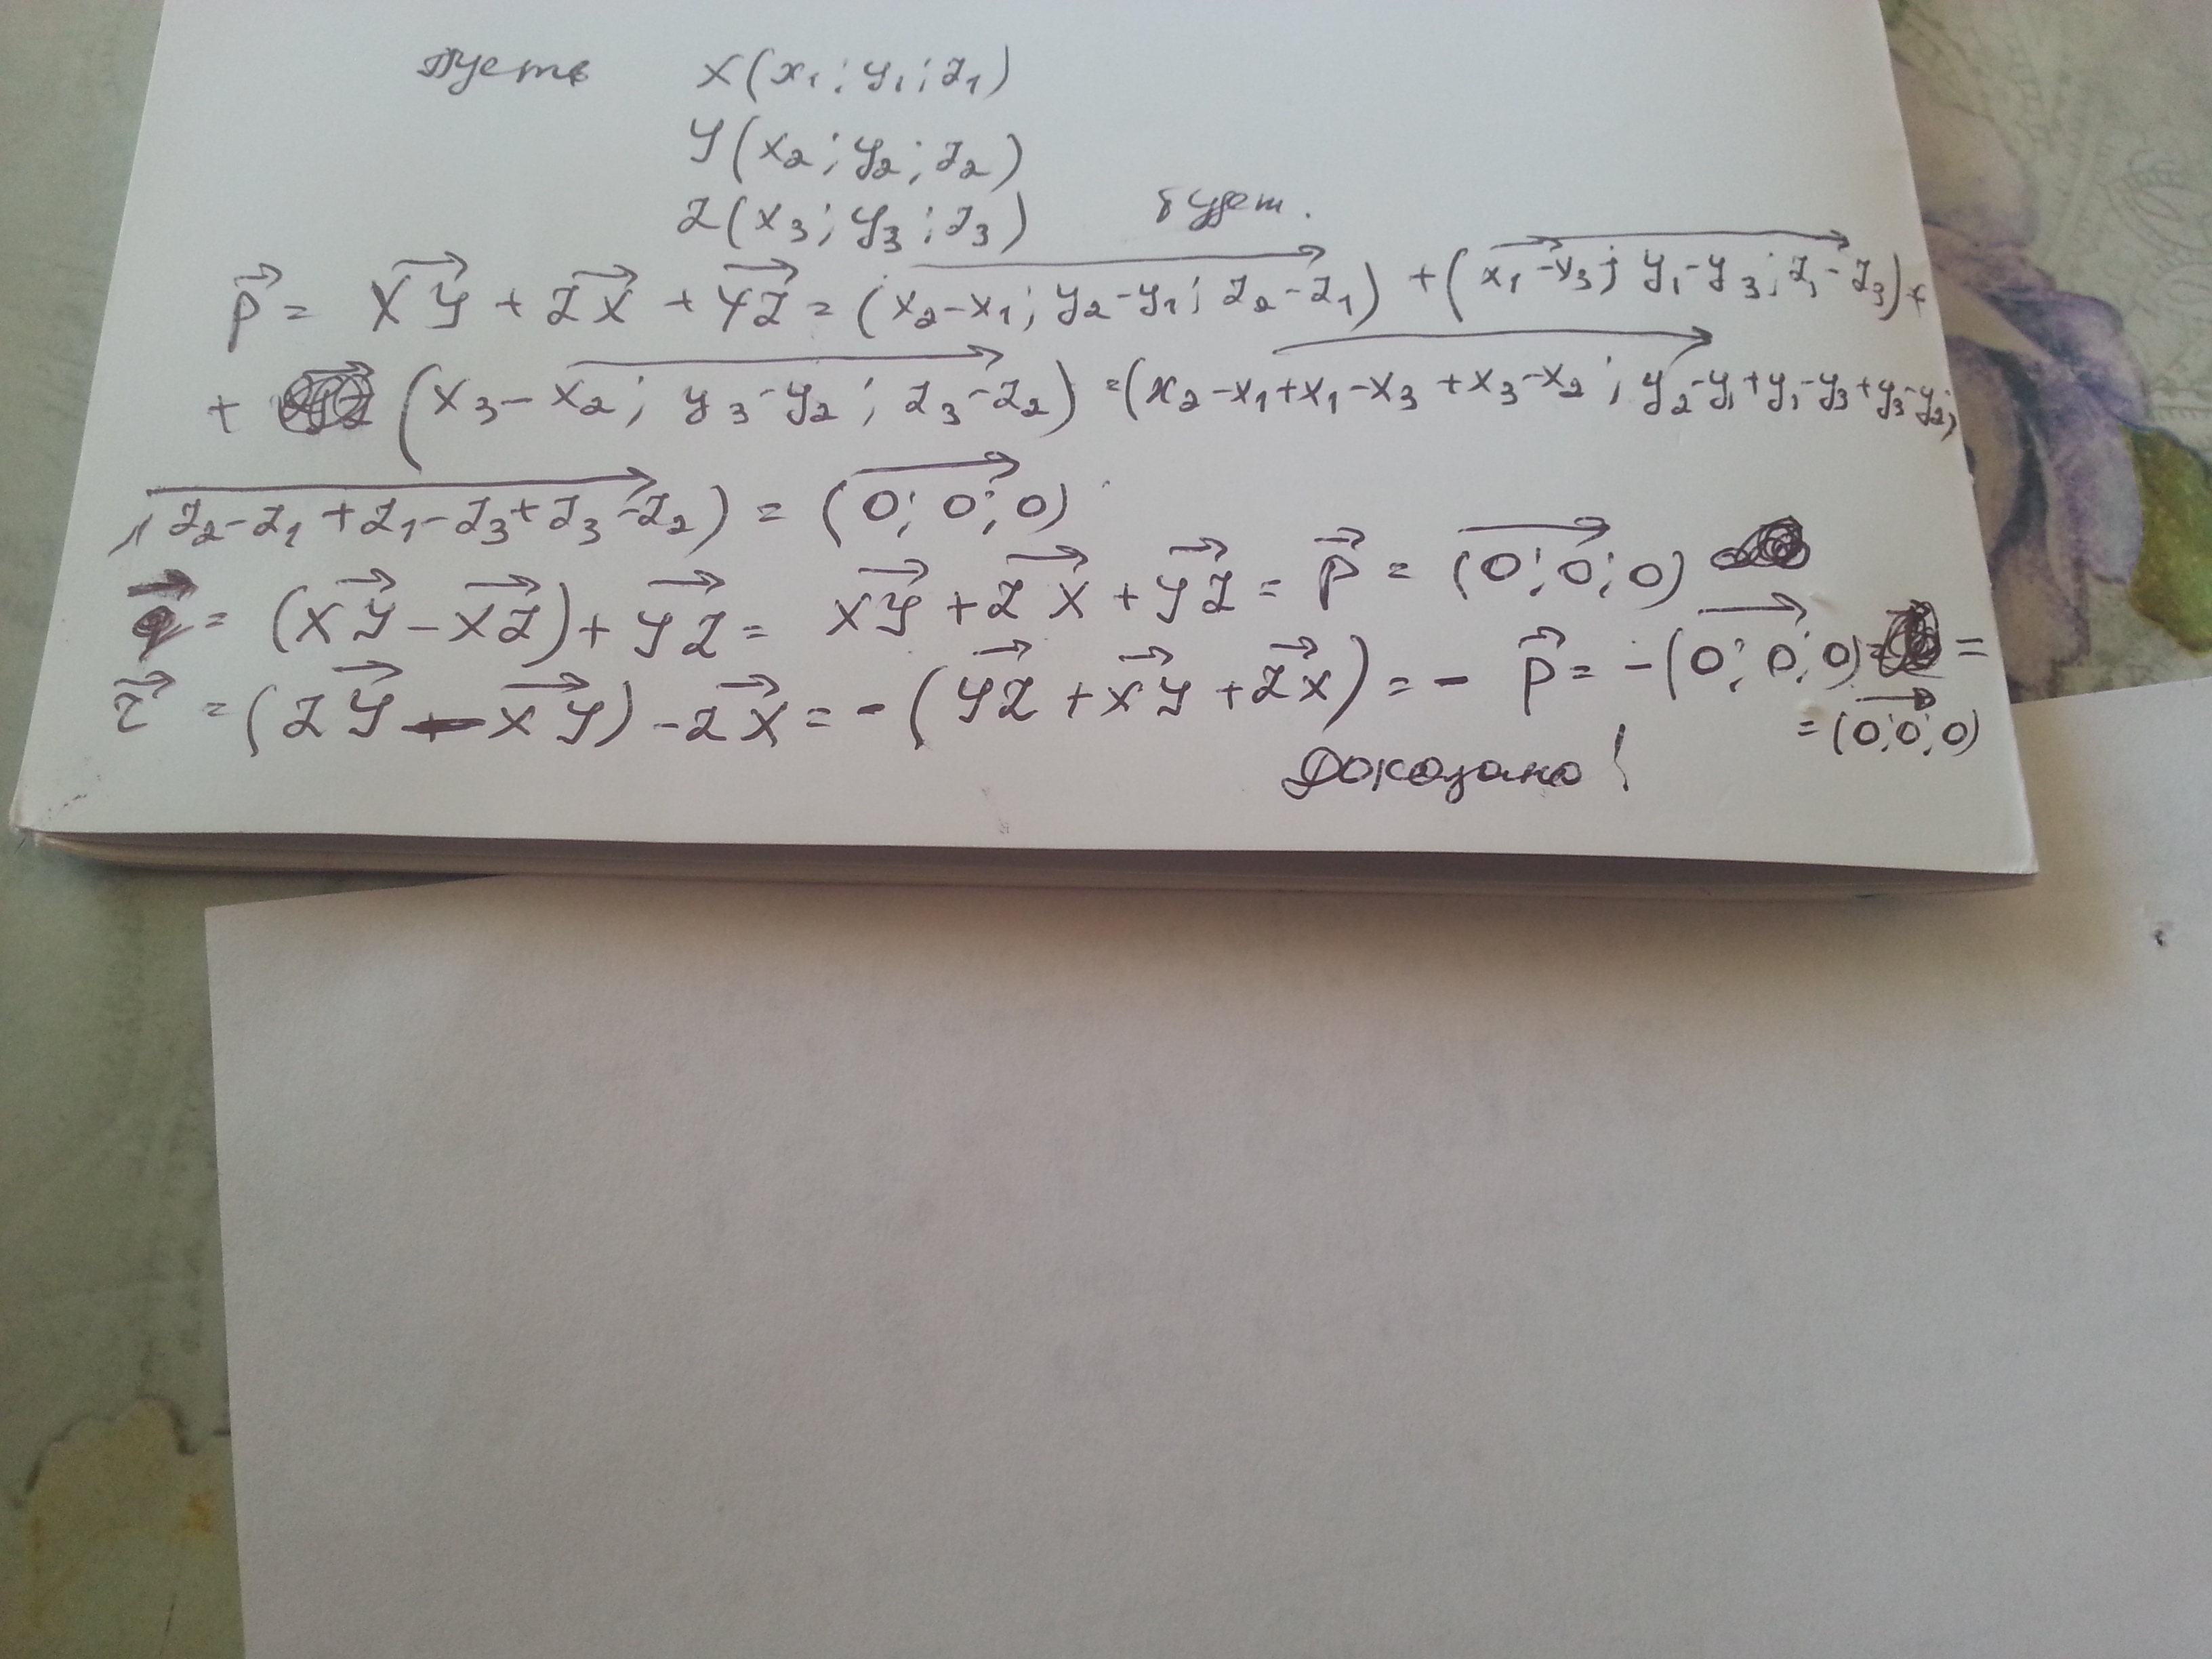 Пусть X(x₁; y₁; z₁)
Y(x₂; y₂; z₂)
Z(x₃; y₃; z₃) будет.
p⃗ = XY⃗ + ZX⃗ + YZ⃗ = (x₂-x₁; y₂-y₁; z₂-z₁) + (x₁-x₃; y₁-y₃; z₁-z₃) +
+ (x₃-x₂; y₃-y₂; z₃-z₂) = (x₂-x₁+x₁-x₃+x₃-x₂; y₂-y₁+y₁-y₃+y₃-y₂;
; z₂-z₁+z₁-z₃+z₃-z₂) = (0; 0; 0)
q⃗ = (XY⃗ - XZ⃗) + YZ⃗ = XY⃗ + ZX⃗ + YZ⃗ = p⃗ = (0; 0; 0)
r⃗ = (ZY⃗ - XY⃗) - ZX⃗ = - (YZ⃗ + XY⃗ + ZX⃗) = - p⃗ = -(0; 0; 0) =
= (0; 0; 0)
Доказано!